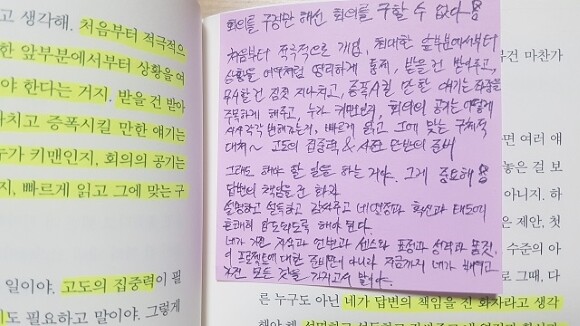 고 생각해. 처음부터 적극적으
한 앞부분에서부터 상황을 여
야 한다는 거지. 받을 건 받아
치고 증폭시킬 만한 얘기는
누가 키맨인지, 회의의 공기는
지, 빠르게 읽고 그에 맞는 구
일이야. 고도의 집중력이 필
도 필요하고 말이야. 그렇게
회의를 구경만 해선 회의를 구할 수 없다
처음부터 적극적으로 개입, 최대한 앞부분에서부터
상황을 여우처럼 영리하게 통제, 받을 건 받아주고,
무시할 건 짐짓 지나치고, 증폭시킬 만한 얘기는 좌중을
주목하게 해주고, 누가 키맨인지, 회의의 공기는 어떻게
시시각각 변해가는지, 빠르게 읽고 그에 맞는 구체적
대처~ 고도의 집중력 & 사전 만반의 준비
그래도 해야 할 일을 하는 거야. 그게 중요해
답변의 책임을 진 화자
설명하고 설득하고 감싸주고 네 열정과 확신과 태도에
통째로 압도되도록 해야 된다.
네가 가진 지식과 언변과 센스와 표정과 성격과 몸짓,
이 프로젝트에 대한 준비뿐 아니라 지금까지 네가 배워온
모든 것을 가지고서 말이야.
부건 마찬가
면 여러 애
놓은 걸 보
아니지. 하
은 제안, 첫
수준의 아
로 그때, 다
른 누구도 아닌 네가 답변의 책임을 진 화자라고 생각